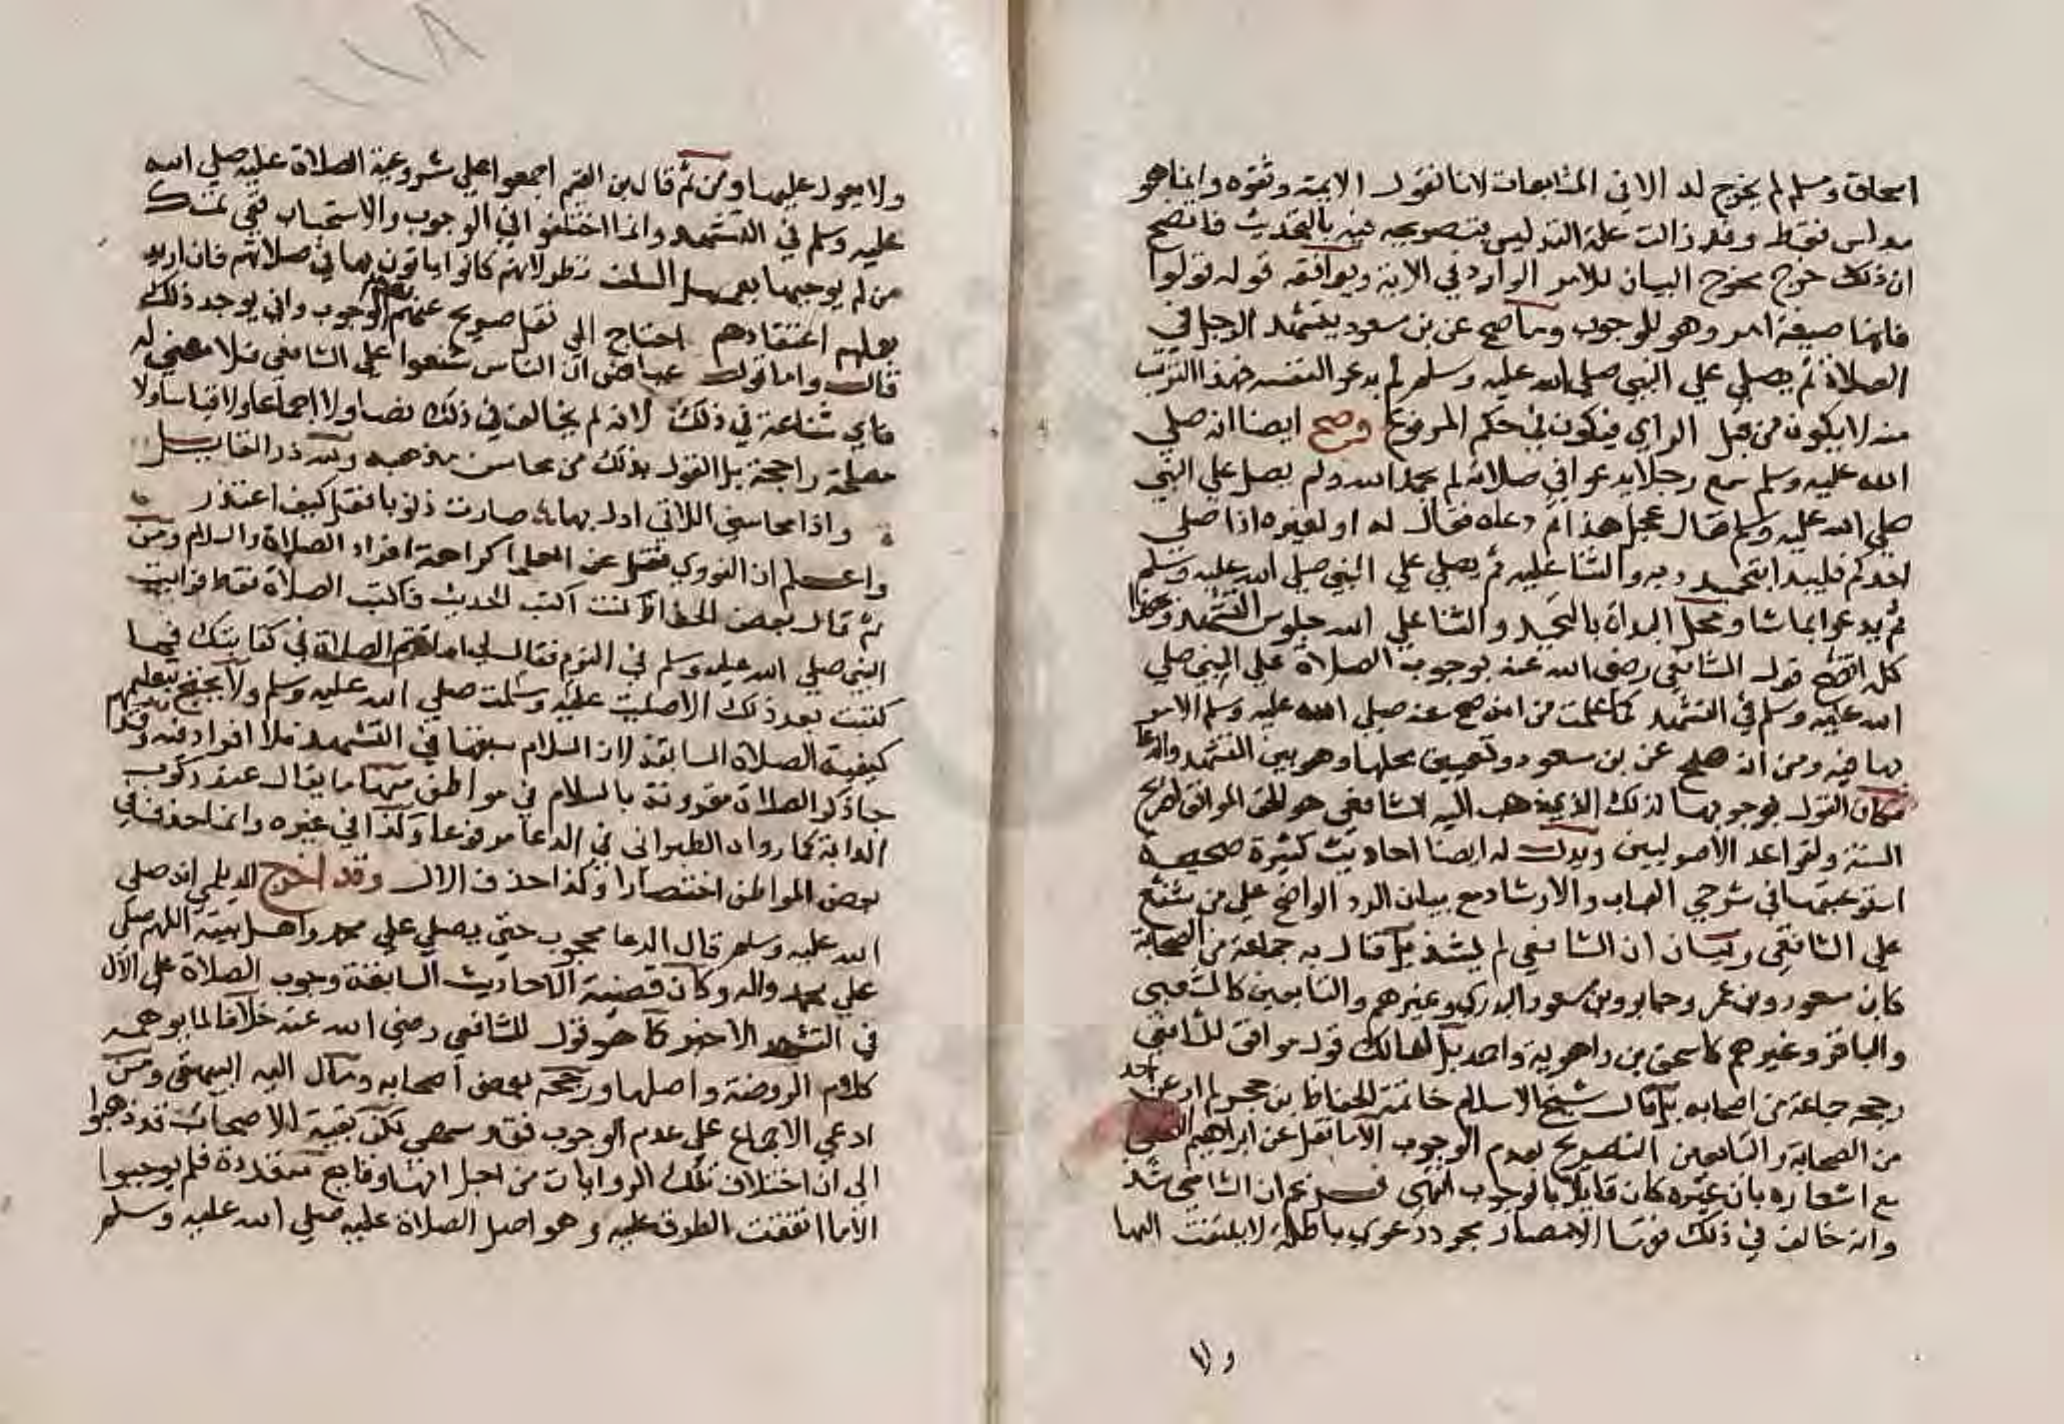 اسحاق ومسلم لم يخرج له الا في المتابعات لانا نقول الايمة وثقوه وانما هو
مدلس فقط وقد زالت علة التدليس بتصريحه فيه بالتحديث فاتضح
ان ذلك خرج مخرج البيان للامر الوارد في الاية ويوافقه قوله قولوا
فانها صيغة امر وهو للوجوب وما صح عن بن مسعود يتشهد الرجل في
الصلاة ثم يصلي علي النبي صلي الله عليه وسلم ثم يدعو لنفسه فهذا الترتيب
منه لا يكون من قبل الراي فيكون في حكم المرفوع وصح ايضا انه صلي
الله عليه وسلم سمع رجلا يدعوا في صلاته لم يحمد الله ولم يصل علي النبي
صلي الله عليه وسلم فقال عجل هذا ثم دعاه فقال له او لغيره اذا صلي
احدكم فليبدا بتحميد ربه والثنا عليه ثم يصلي علي النبي صلي الله عليه وسلم
ثم يدعوا بما شا ومحل البداة بالتحميد والثنا علي الله جلوس التشهد وبهذا
كله اتضح قول الشافعي رضي الله عنه بوجوب الصلاة علي النبي صلي
الله عليه وسلم في التشهد لما علمت من انه صح عنه صلي الله عليه وسلم الامر
بها فيه ومن انه صح عن بن مسعود وتعيين محلها وهو بين التشهد والدعا
فكان القول بوجوبها لذلك الذي ذهب اليه الشافعي هو الحق الموافق لصريح
السنة ولقواعد الاصوليين ويدل له ايضا احاديث كثيرة صحيحة
استوعبتها في شرحي العباب والارشاد مع بيان الرد الواضح علي من شنع
علي الشافعي وبيان ان الشافعي لم يشذ بل قال به جماعة من الصحابة
كابن مسعود وبن عمر وجابر وبن مسعود البدري وغيرهم والتابعين كالشعبي
والباقر وغيرهم كاسحق بن راهوية واحمد بل لمالك قول موافق للشافعي
رجحه جماعة من اصحابه بل قال شيخ الاسلام خاتمة الحفاظ بن حجر لم ار عن احد
من الصحابة والتابعين التصريح بعدم الوجوب الا ما نقل عن ابراهيم النخعي
مع اشعاره بان غيره كان قايلا بالوجوب انتهي فـزعم ان الشافعي شذ
وانه خالف في ذلك فقها الامصار مجرد دعوي باطلة لا يلتفت اليها
ولا
١١٨
ولا يعول عليها ومن ثم قال بن القيم اجمعوا علي مشروعية الصلاة عليه صلي الله
عليه وسلم في التشهد وانما اختلفوا في الوجوب والاستحباب ففي تمسك
من لم يوجبها بعمل السلف نظر لانهم كانوا ياتون بها في صلاتهم فان اريد
بعملهم اعتقادهم احتاج الي نقل صريح عنهم بعدم الوجوب واني يوجد ذلك
قال واما قول عياض ان الناس شنعوا علي الشافعي فلا معني له
فاي شناعة في ذلك لانه لم يخالف في ذلك نصا ولا اجماعا ولا قياسا ولا
مصلحة راجحة بل القول بذلك من محاسن مذهبه ولله در القايل
واذا محاسني اللاتي ادل بها صارت ذنوبا فقل كيف اعتذر
واعلم ان النووي نقل عن العلما كراهة افراد الصلاة والسلام ومن
ثم قال بعض الحفاظ كنت اكتب الحديث فاكتب الصلاة فقط فرايت
النبي صلي الله عليه وسلم في النوم فقال لي اما تتم الصلاة في كتابتك فما
كتبت بعد ذلك الا صليت عليه وسلمت صلي الله عليه وسلم ولا يحتج بتعليمهم
كيفية الصلاة السابقة لان السلام سبقها في التشهد فلا افراد فيه وقد
جا ذكر الصلاة مقرونة بالسلام في مواطن منها ما يقال عند ركوب
الدابة كما رواه الطبراني في الدعا مرفوعا وكذا في غيره وانما حذف في
بعض المواطن اختصارا وكذا حذف الال وقد اخرج الديلمي انه صلي
الله عليه وسلم قال الدعا محجوب حتي يصلي علي محمد واهل بيته اللهم صل
علي محمد واله وكان قضية الاحاديث السابقة وجوب الصلاة علي الال
في التشهد الاخير كما هو قول للشافعي رضي الله عنه خلافا لما يوهمه
كلام الروضة واصلها ورجحه بعض اصحابه ومال اليه البيهقي ومن
ادعي الاجماع علي عدم الوجوب فقد سهي لكن بقية الاصحاب قد ذهبوا
الي ان اختلاف تلك الروايات من اجل انها وقايع متعددة فلم يوجبوا
الا ما اتفقت الطرق عليه وهو اصل الصلاة عليه صلي الله عليه وسلم